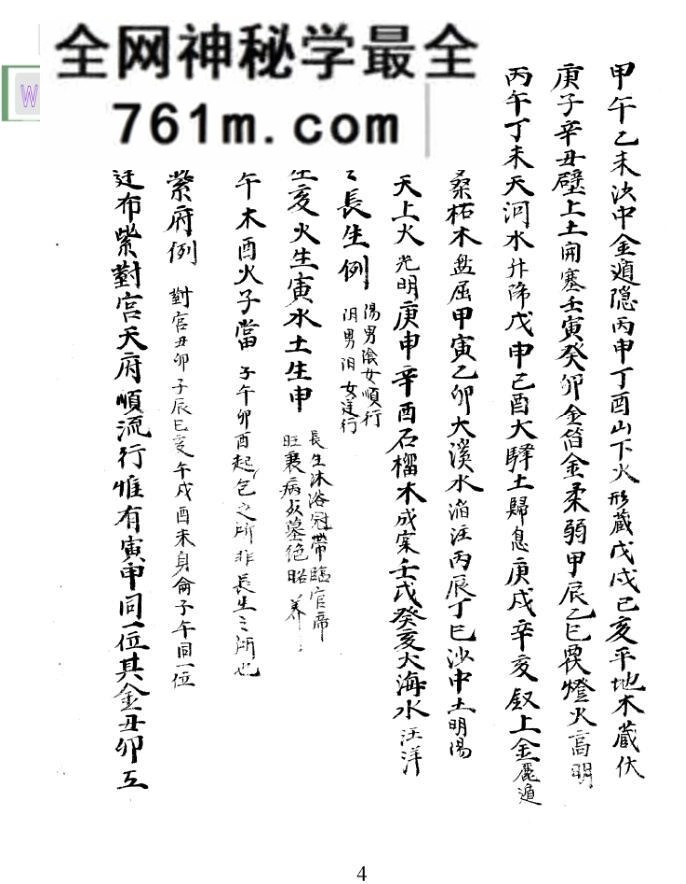 全网神秘学最全
761m.com
W
甲午乙未沙中金遁隐丙申丁酉山下火形藏戊戌己亥平地木藏伏
庚子辛丑壁上土開塞壬寅癸卯金箔金柔弱甲辰乙巳覆燈火高明
丙午丁未天河水升降戊申己酉大驛土歸息庚戌辛亥釵上金
桑柘木盘屈甲寅乙卯大溪水湝注丙辰丁巳沙中土明陽
天上火光明庚申辛酉石榴木成寀壬戌癸亥大海水汪洋
長生例 陽男陰女順行
阴男阳女逆行
生亥火生寅水土生申 長生沐浴冠帶臨官帝
旺衰病死墓絕胎养
午木酉火子當 子午卯酉起包之所非長生之所也
紫府例 對宮丑卯子辰巳亥午戌酉未身侖子午同一位
廷布紫對宮天府順流行惟有寅申同一位其金丑卯互
4